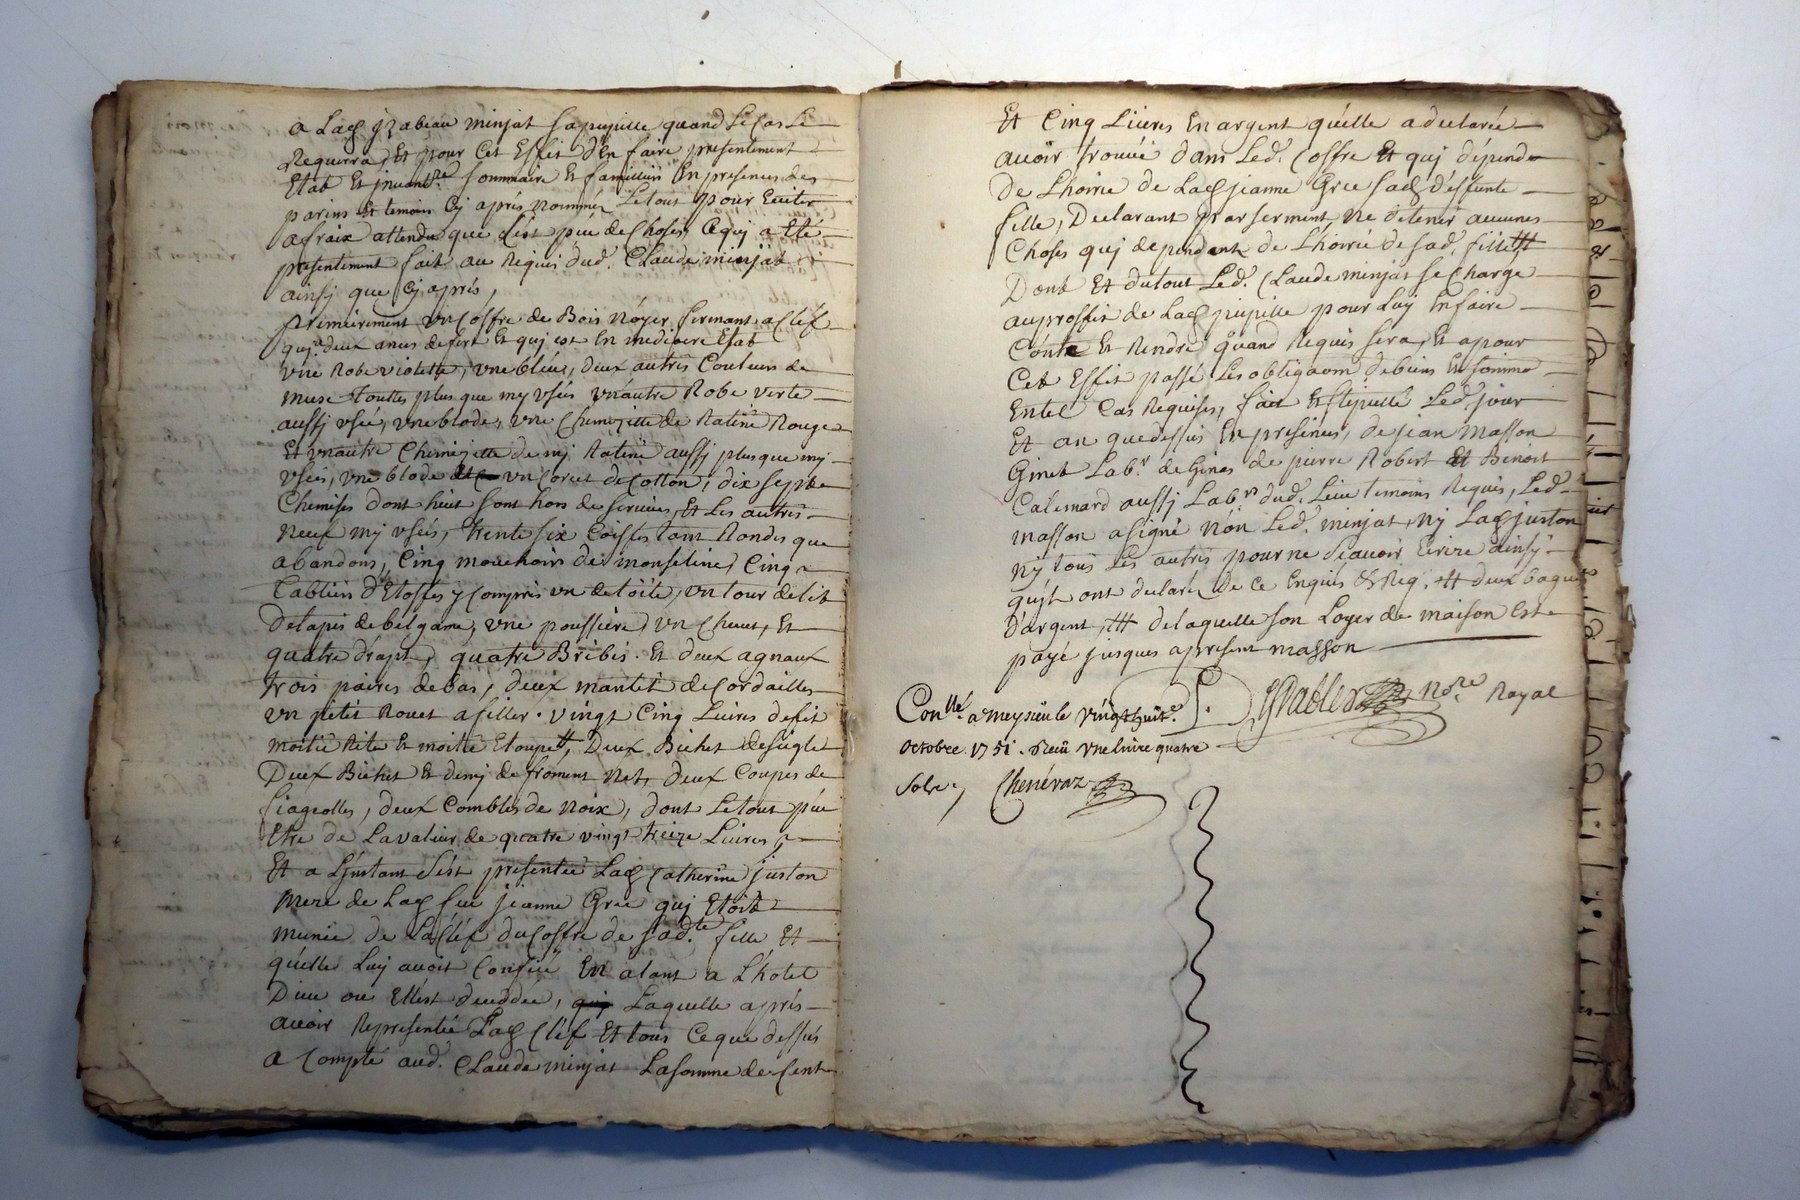 a Lad. Izabeau minjat sa pupille quand Le Cas Le
Requerra, Et pour Cet Effet d'En faire presentement
Etat Et jnvent.re sommaire Et familliere En presence des
parins Et temoins Cy apres nommés Le tout pour Eviter
a fraix attendu que C'est peu de Choses, Ce quj a Eté
presentement fait au Requis dud. Claude minjat
ainsy que Cy apres,
premierement un Coffre de Bois Noyer fermant a Cléf
quj a deux ances de fert Et quj est En mediocre Etat
une Robe violette, une bleüe, deux autres Couleurs de
muse Touttes plus que my usés un autre Robe verte
aussj usée, une blode, une Chemizette de Ratine Rouge
Et un autre Chemizette de mj Ratine aussj plus que my
usées, une blode un Corcet de Cotton, dix sept
Chemises dont huit sont hors de service, Et Les autres
neuf my usées, trente six Coiffes tant Rondes que
abandons, Cinq mouchoirs de mousseline, Cinq
Tabliers d'Etoffes y Compris un de toile, un tour de lit
de tapis de bergame, une poussiere, un Chevet, Et
quatre draps, quatre Brebis. Et deux agneaux
trois paires de bas, deux mantes de Cordailles
un petit Rouet a filler. vingt Cinq Livres de fil
moitié Rite Et moitié Etoupe #, Deux Bichet de seigle
Deux Bichet Et demj de froment Net, deux Coupes de
fiageolles, deux Combles de noix, dont Le tout peu
Etre de La valeur de quatre vingt treize Livres,
Et a L'jnstant s'est presentée Lad. Catherine juston
mere de Lad. feue jeanne Grée quj Etoit
munie de La Cléf du Coffre de sad.te fille Et
qu'elle Luy avoit Confiée En alant a L'hotel
Dieu ou Ell'est deceddée, Laquelle aprés
avoir Representée Lad. Cléf Et tous Ce que dessus
a Compté aud. Claude minjat La somme de Cent
Et Cinq Livres En argent qu'elle a declarée
avoir trouvée dans Led. Coffre Et quj dépend
De L'hoirie de Lad. jeanne Grée sad. deffunte
fille, Declarant par serment ne detenir aucunes
Choses quj dependent de L'hoirie de sad. fille #
Dont Et du tout Led. Claude minjat se Charge
au proffit de Lad. pupille pour Luy En faire
Conte Et Rendre quand Requis sera, Et a pour
Cet Effet passé Les obligaons de biens En forme
En tel Cas Requises, fait Et stipullé Led. jour
Et an que dessus En presence, de jean Masson
Ginet Lab.r de Ginas de pierre Robert Et Benoit
Calemard aussj Lab.rs dud. Lieu temoins Requis, Led.
masson a signé non Led. minjat, ny Lad. juston
ny tous Les autres pour ne sçavoir Ecrire ainsy
qu'jl ont declaré de ce Enquis & Req. # deux bagues
d'argent, # de laquelle son Loyer de maison Est
payé jusques a present masson
Not.re Royal
Con.llé a meyzieu le vingt huit.e
octobre 1751. Reçu une livre quatre
sols, Chenévaz